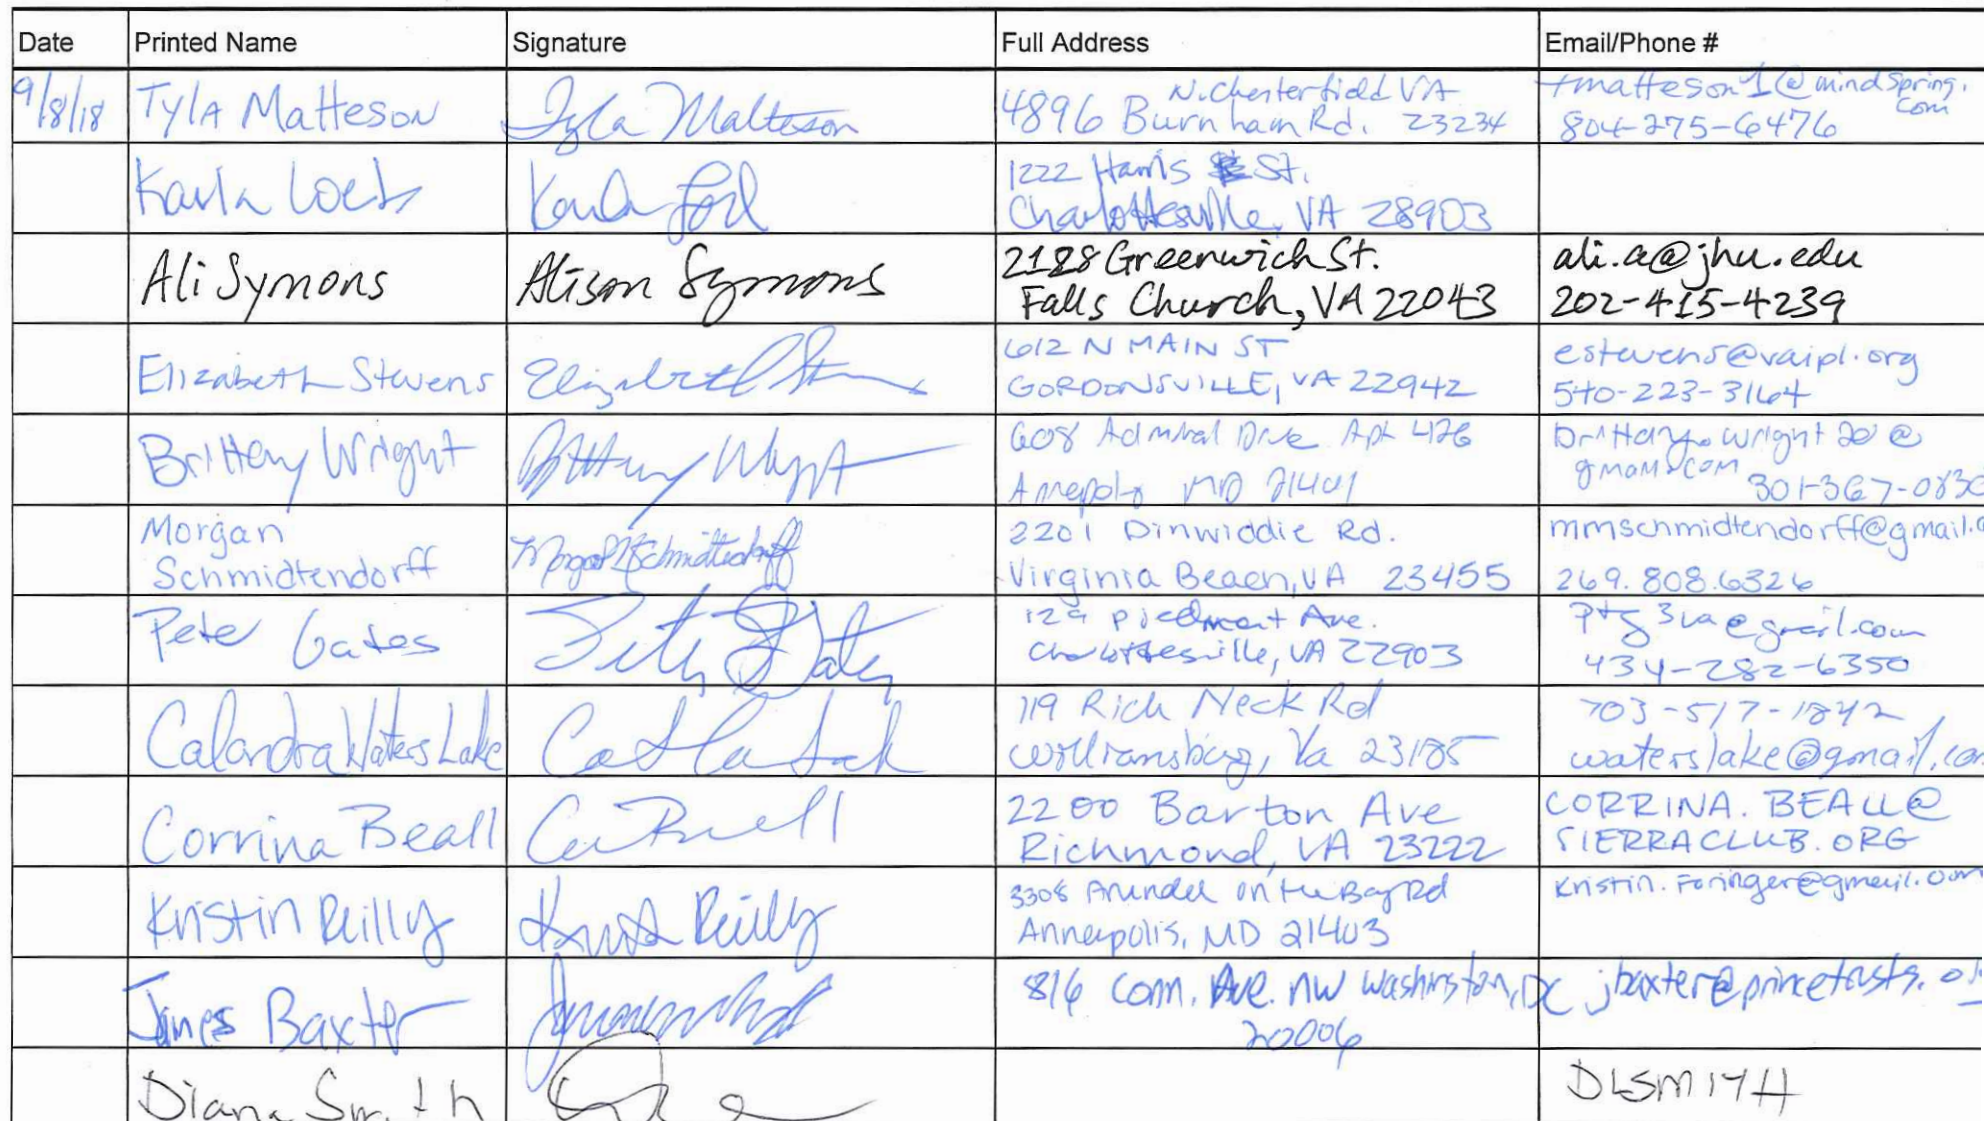 Date Printed Name Signature Full Address Email/Phone #
9/8/18 Tyla Matteson Tyla Matteson N. Chesterfield VA
4896 Burnham Rd. 23234 tmatteson1@mindspring.com
804-275-6476
Karla Loeb Karla 1222 Harris St.
Charlottesville, VA 28903
Ali Symons Alison Symons 2128 Greenwich St.
Falls Church, VA 22043 ali.a@jhu.edu
202-415-4239
Elizabeth Stevens Elizabeth 612 N MAIN ST
GORDONSVILLE, VA 22942 estevens@vaipl.org
540-223-3164
Brittany Wright Brittany Wright 608 Admiral Drive Apt 426
Annapolis MD 21401 brittany.wright20@
gmail.com 301-367-083
Morgan
Schmidtendorff Morgan Schmidtendorff 2201 Dinwiddie Rd.
Virginia Beach, VA 23455 mmschmidtendorff@gmail.c
269.808.6326
Pete Gates Peter Gates 129 Piedmont Ave.
Charlottesville, VA 22903 ptg3va@gmail.com
434-282-6350
Calandra Waters Lake 119 Rich Neck Rd
Williamsburg, Va 23185 703-517-1842
waterslake@gmail.com
Corrina Beall 2200 Barton Ave
Richmond, VA 23222 CORRINA.BEALL@
SIERRACLUB.ORG
Kristin Reilly Reilly 3308 Arundel on the Bay Rd
Annapolis, MD 21403 Kristin.Foringer@gmail.com
James Baxter 816 Conn. Ave. NW Washington, DC
20006 jbaxter@princetrusts.o
Diana Smith DLSMITH